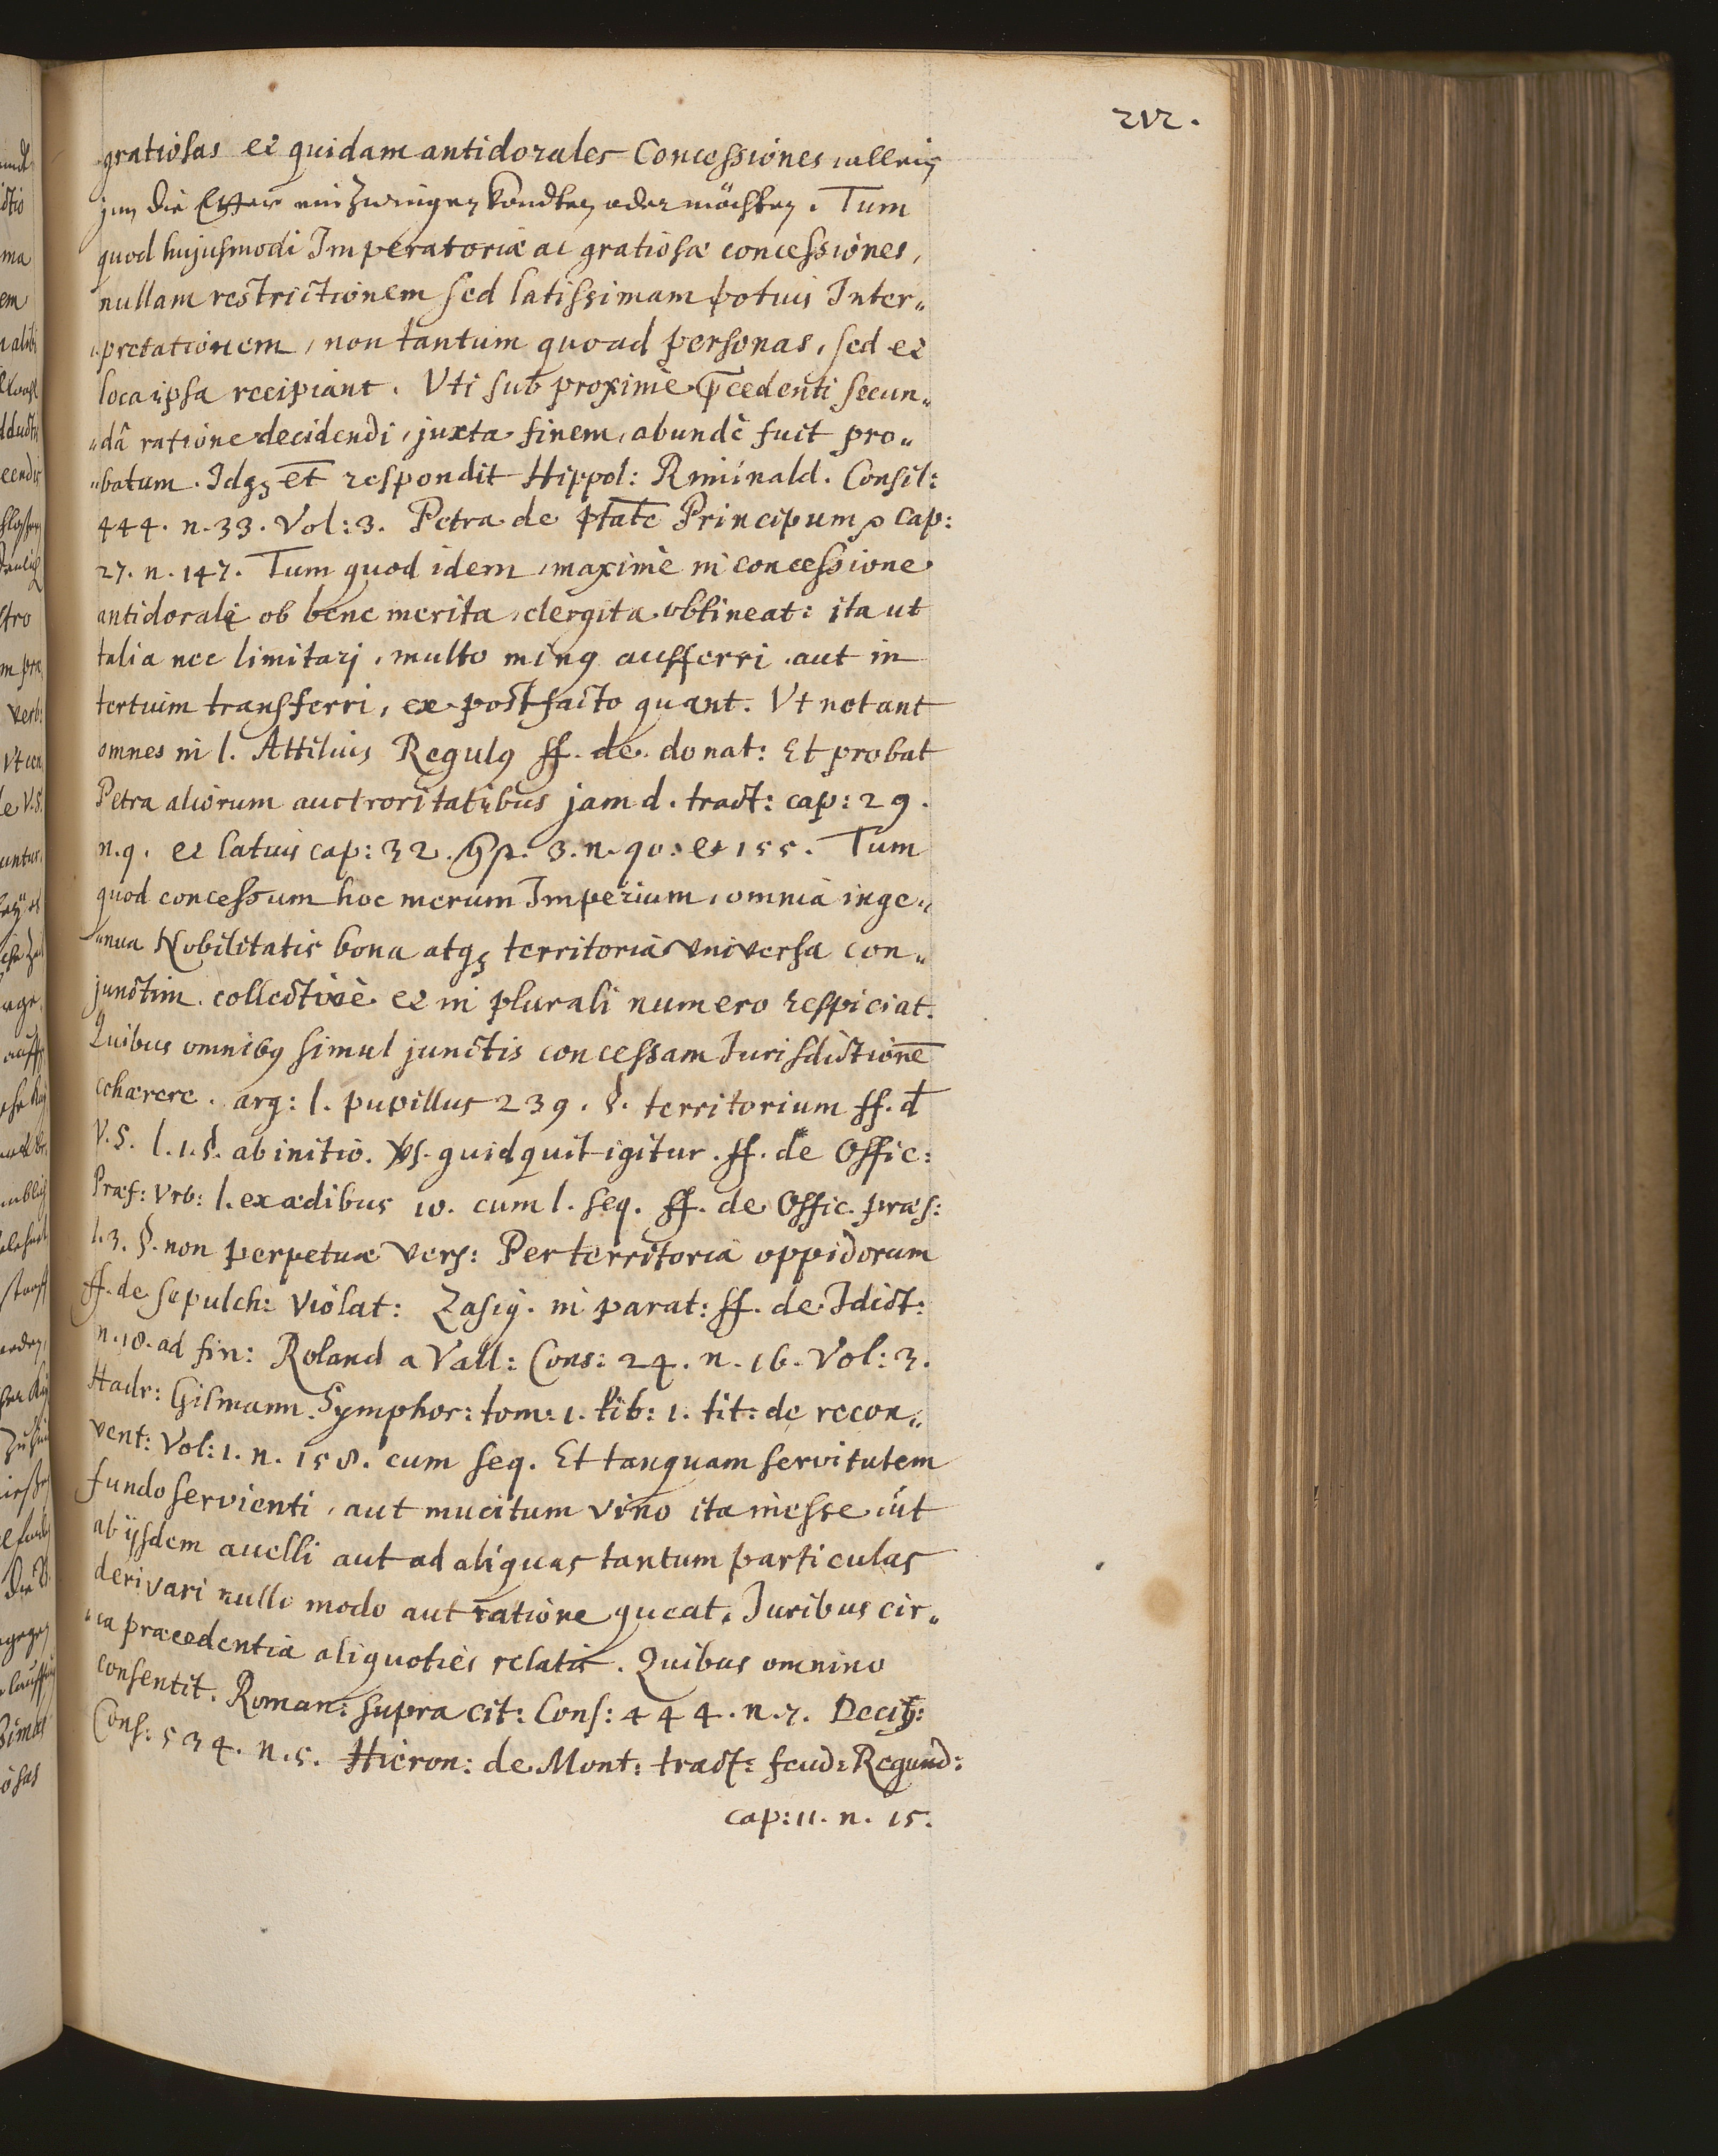 212.
gratiosas et quidam antidorales Concessiones, allein
jnn die Etter einzwingen kondten oder möchten. Tum
quod hujusmodi Imperatoriæ ac gratiosæ concessiones,
nullam restrictionem sed latissimam potius Inter„
„pretationem, non tantum quoad personas, sed et
loca ipsa recipiant. Vti sub proximè p̄cedenti secun„
„dâ ratione decidendi, juxta finem, abundè fuit pro„
„batum. Idqȝ et respondit Hippol: Riminald. Consil:
444. n. 33. Vol: 3. Petra de ptāte Principum cap:
27. n. 147. Tum quod idem, maximè in concessione
antidorali ob bene merita, elergita obtineat: ita ut
talia nec limitari, multo minꝰ aufferri aut in
tertium transferri, ex post facto queant. Vt notant
omnes in l. Attilius Regulꝰ ff. de donat: Et probat
Petra aliorum auctroritatibus jam d. tract: cap: 29.
n. 9. et latius cap: 32. 3. n. 90. et 155. Tum
quod concessum hoc merum Imperium, omnia inge„
„nua Nobilitatis bona atqȝ territoria universa con„
junctim, collectivè et in plurali numero respiciat.
Quibus omnibꝰ simul junctis concessam Jurisdictionē
cohærere. arg: l. pupillus 239. §. territorium ff. d
V. S. l. 1. §. ab initio. vs. quidquit igitur. ff. de Offic:
Præf: Vrb: l. ex ædibus 10. cum l. seq. ff. de Offic. præs:
l. 3. §. non perpetuæ vers: Per territoria oppidorum
ff. de sepulch: violat: Zasiꝰ. in parat: ff. de Jdict:
n. 18. ad fin: Roland a Vall: Cons: 24. n. 16. Vol: 3.
Hadr: Gilmann. Symphor: tom: 1. lib: 1. tit: de recon„
vent: Vol: 1. n. 158. cum seq. Et tanquam servitutem
fundo servienti, aut mucitum vino ita inesse, ut
ab ijsdem auelli aut ad aliquas tantum particulas
derivari nullo modo aut ratione queat. Juribus cir„
„ca præcedentia aliquoties relatis. Quibus omnino
consentit. Roman: supra cit: Cons: 444. n. 7. Deciꝰ:
Cons: 534. n. 5. Hieron: de Mont: tract: feud: Regund:
cap: 11. n. 15.